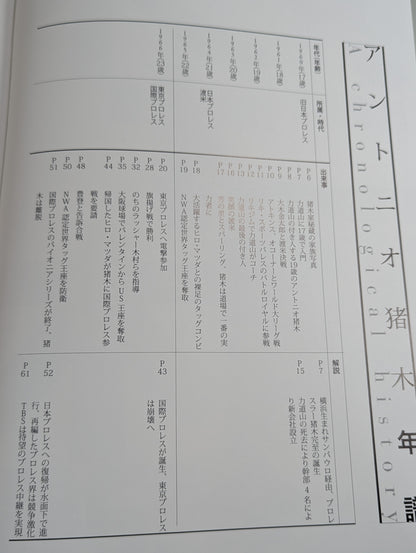 アントニオ猪木年譜
A chronological history
年代(年齢)
所属・時代
出来事
解説
1960年(17歳)
1961年(18歳)
1962年(19歳)
1963年(20歳)
1964年(21歳)
1965年(22歳)
1966年(23歳)
旧日本プロレス
日本プロレス
渡米
東京プロレス
国際プロレス
P6 猪木家秘蔵の家族写真
力道山に17歳で入門
力道山の付き人する19歳のアントニオ猪木
大木金太郎と決戦
アトキンス、オコーナーとワールド大リーグ戦
リキ・スポーツパレスのバトルロイヤルに参戦
力道山の最後の付き人
P18 大活躍するヒロ・マツダとの裸足のタッグコンビ
P19 NWA認定世界タッグ王座を奪取
P20 東京プロレスへ電撃参加
P28 旗揚げ戦で勝利
P32 のちのラッシャー木村らを指導
P35 大阪球場でバレンタインからUS王座を奪取
P44 帰国したヒロ・マツダが猪木に国際プロレス参
戦を要請
P48 豊登と告訴合戦
P50 NWA認定世界タッグ王座を防衛
P51 国際プロレスのパイオニアシリーズが終了、猪
木は離脱
P7 横浜生まれサンパウロ経由、プロレ
スラー猪木完至の誕生
P15 力道山の死去により幹部4名によ
り新会社設立
P43 国際プロレスが誕生、東京プロレス
は崩壊へ
P52 日本プロレスへの復帰が水面下で進
行、再編したプロレス界は競争激化
P61 TBSは待望のプロレス中継を実現